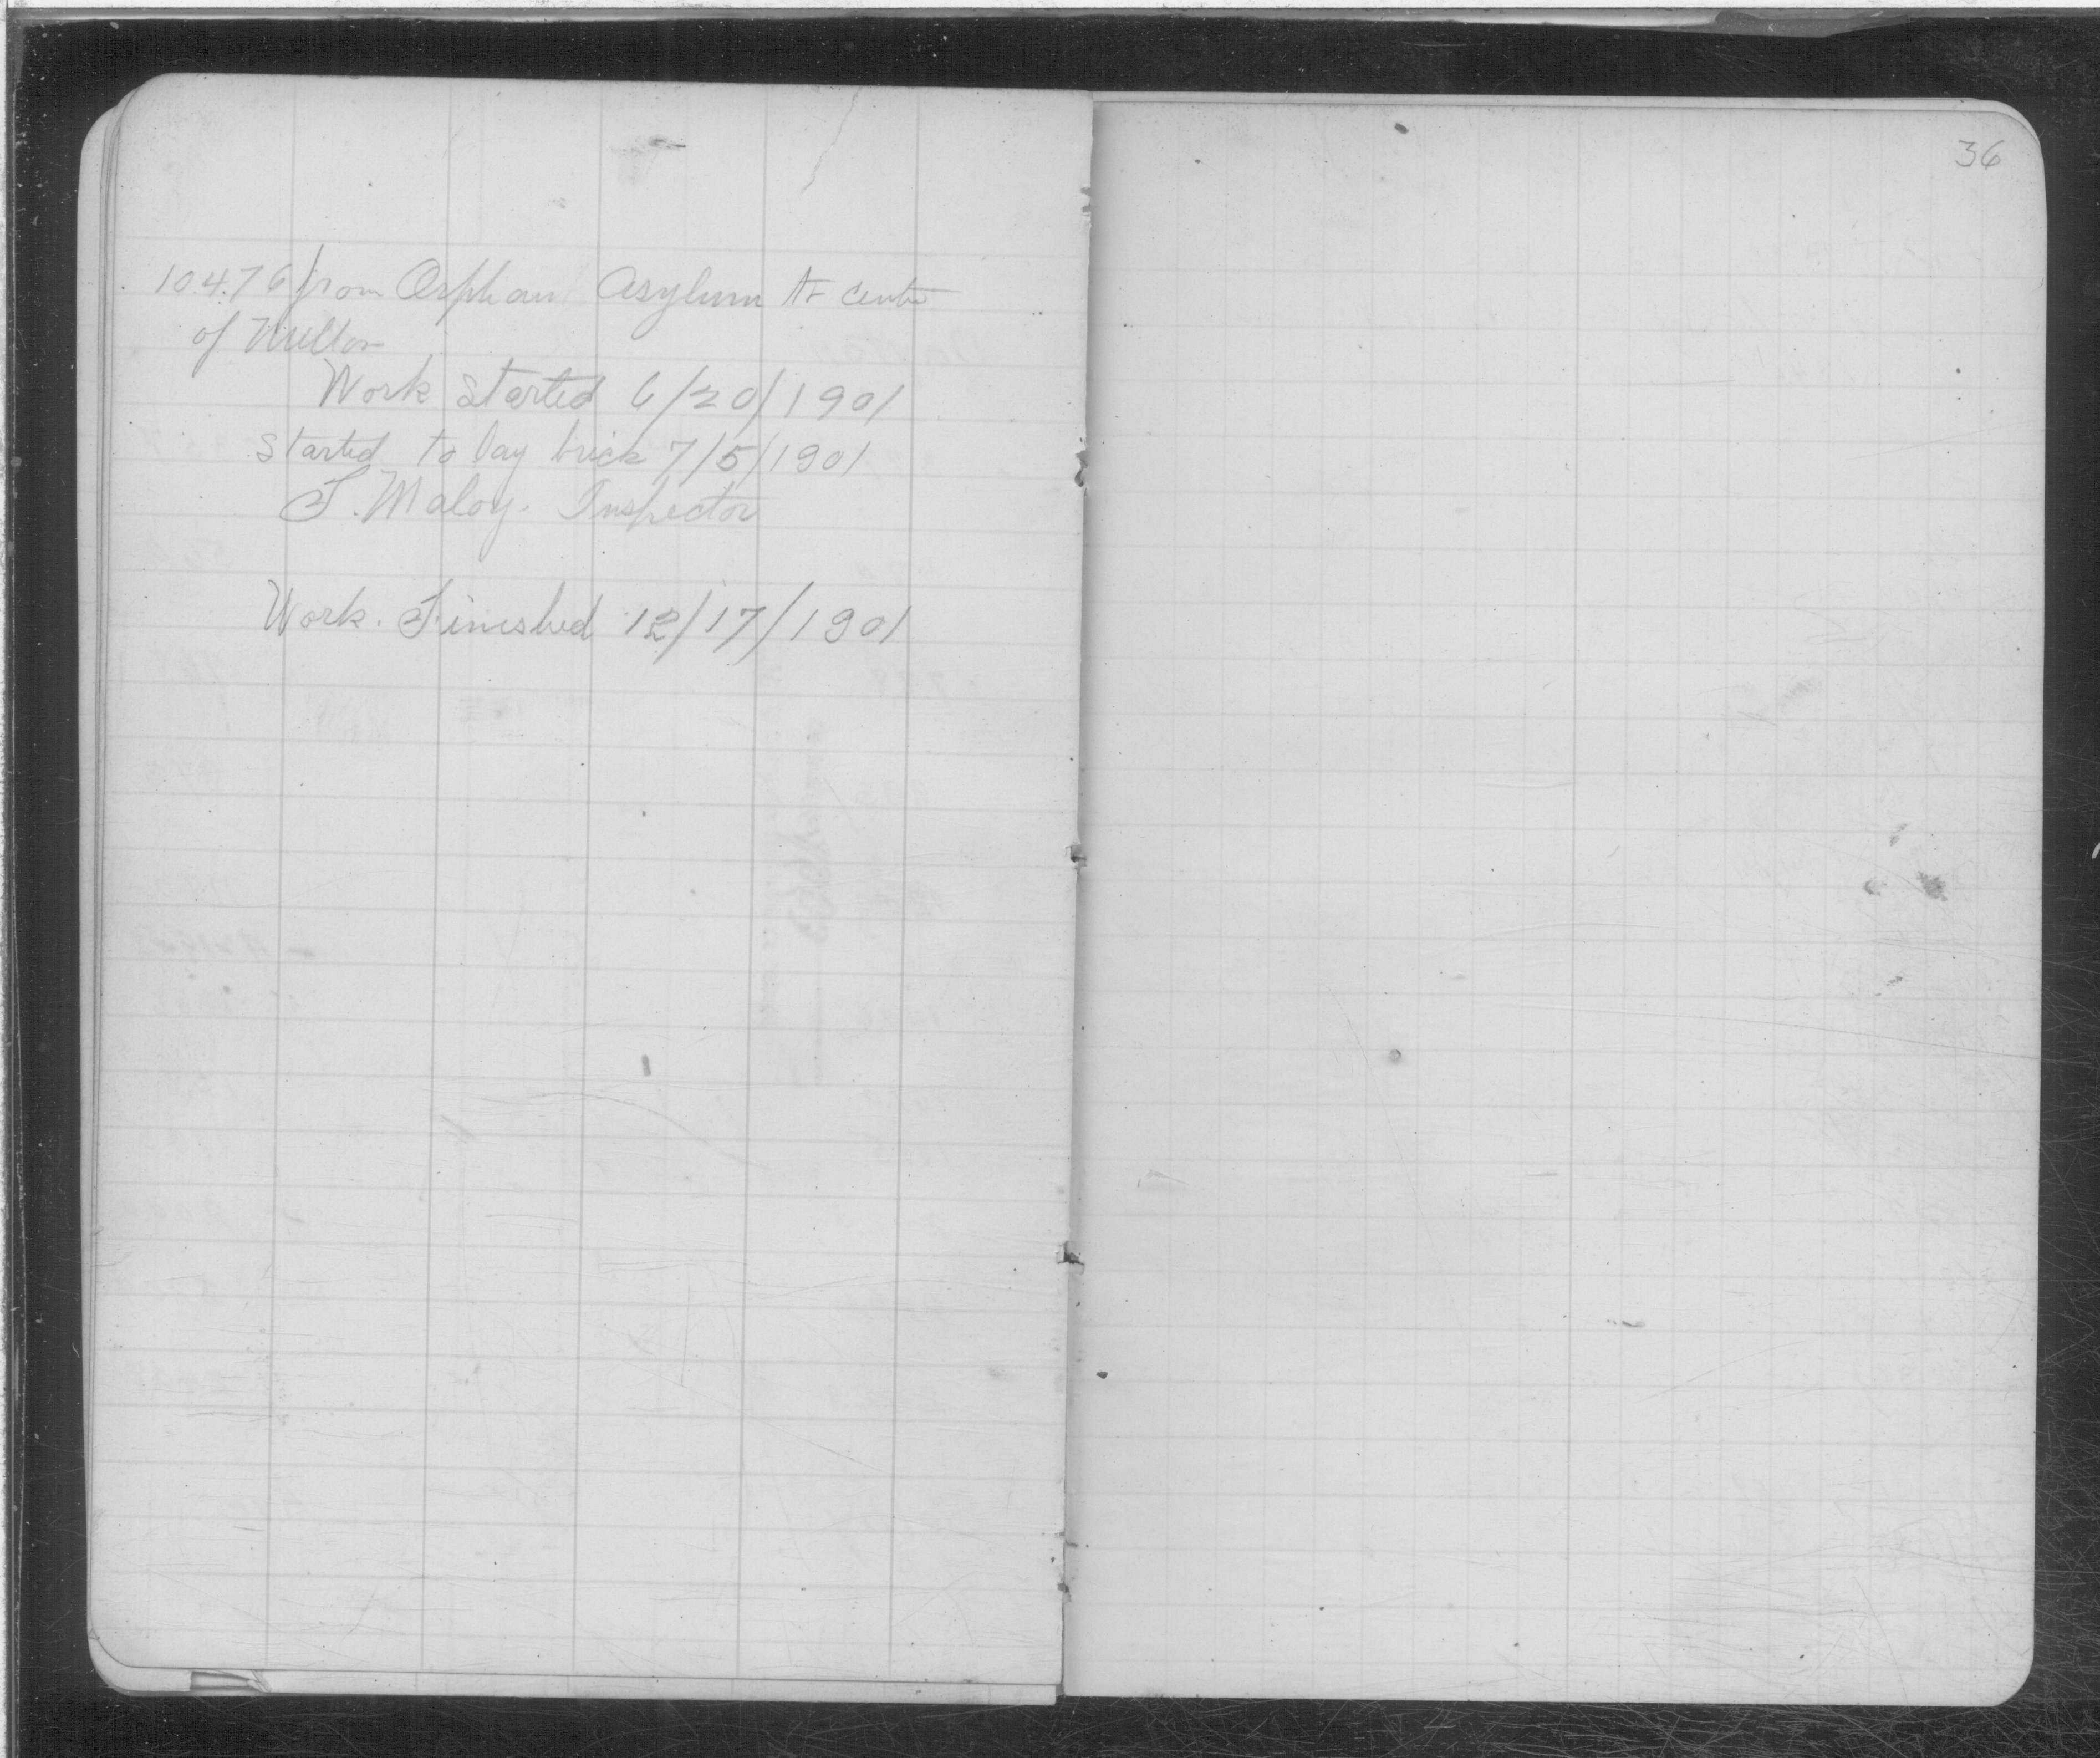 104.76 from Orphan Asylum to centre
of Milton
Work Started 6/20/1901
Started to lay brick 7/5/1901
T. Maloy. Inspector
Work. Finished 12/17/1901
36